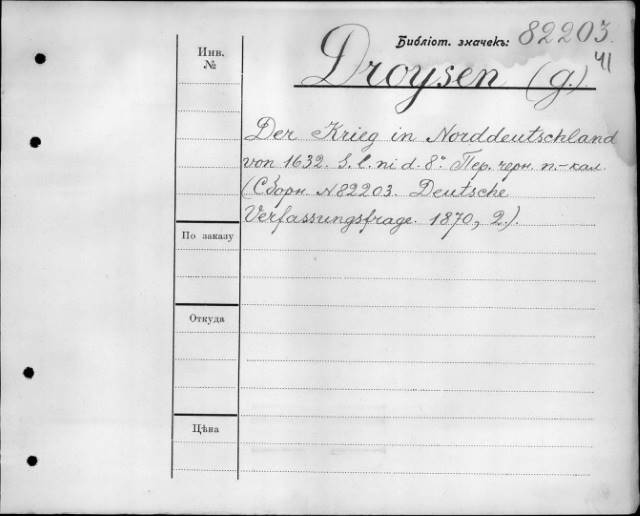 Библіот. значекъ: 82203.
41
Инв.
№
Droysen (G.)
Der Krieg in Norddeutschland
von 1632. S. l. ni d. 8° Пер. черн. п.-кал.
(Сборн. N 82203. Deutsche
Verfassungsfrage. 1870, 2.).
По заказу
Откуда
Цѣна